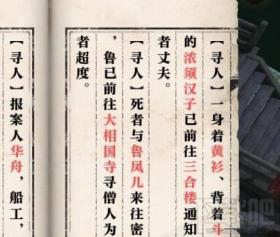 【寻人】一身着黄衫、背着斗
的浓须汉子已前往三合楼通知
者丈夫。
【寻人】死者与鲁凤儿来往密
，鲁已前往大相国寺寻僧人为
者超度。
【寻人】报案人华舟，船工，